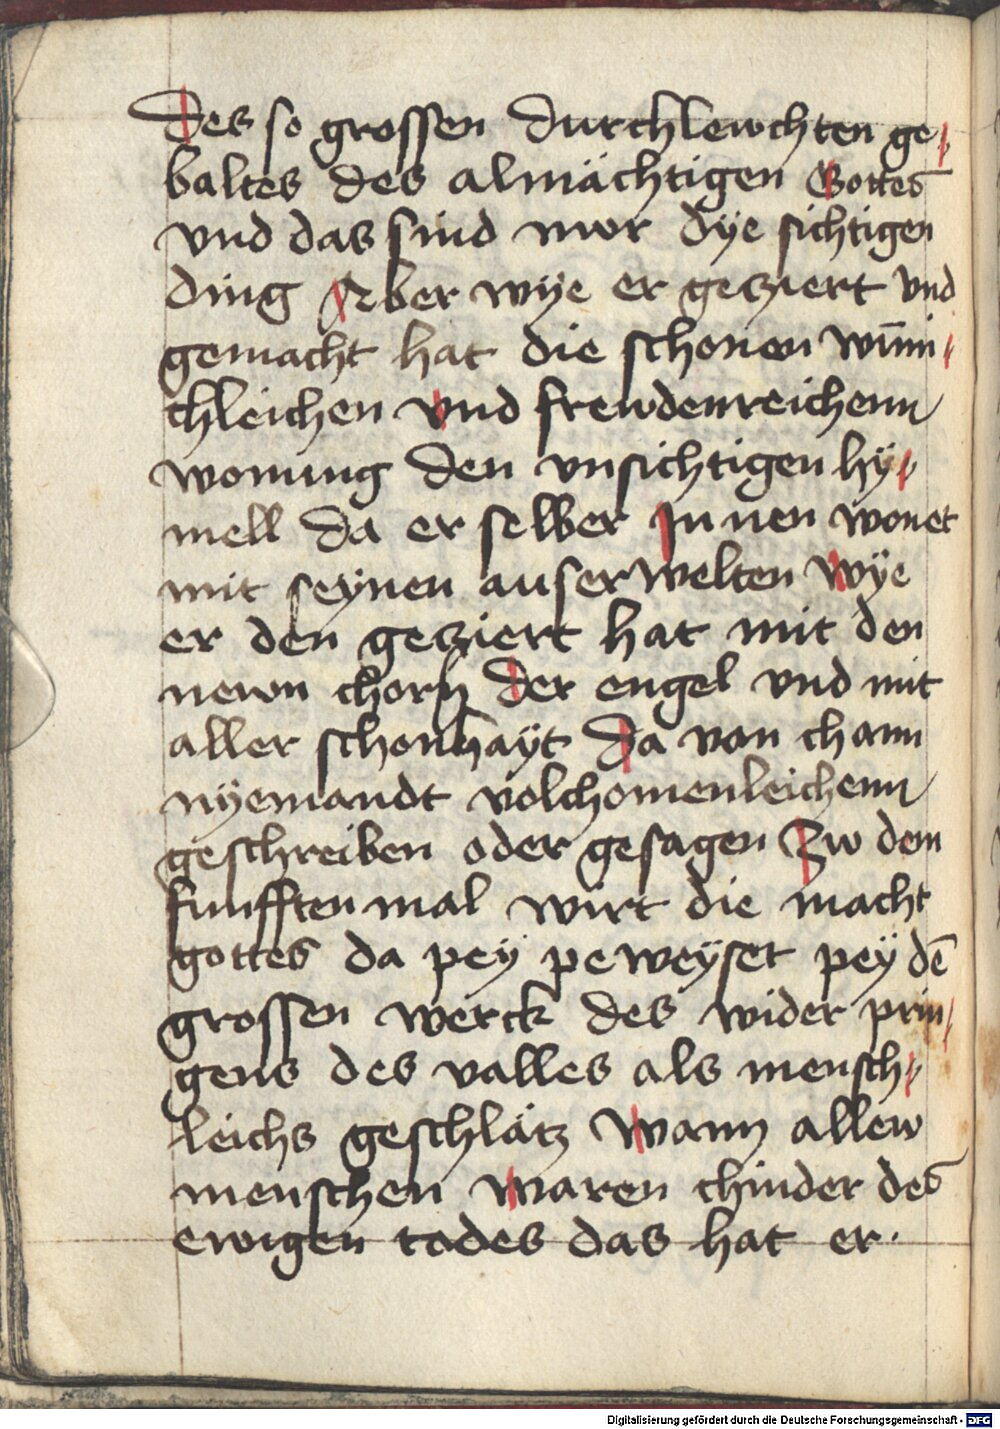 Des so grossen durchlewchten ge⸗
baltes des almächtigen Gottes
vnd das sind nwr dÿe sichtigen
ding Aber wÿe er gecziert vnd
gemacht hat die schonen wūni⸗
chleichen vnd frewdenreichenn
wonung den vnsichtigen hÿ⸗
mell da er selber Jnnen wonet
mit seynen auserwelten Wÿe
er den gecziert hat mit den
newn chorn der engel vnd mit
aller schonhaÿt Da von chann
nÿemandt volchomenleichenn
geschreiben oder gesagen Zw dem
funfften mal wirt die macht
gottes da pey peweÿset peÿ dē
grossen werck des wider prin⸗
gens des valles als mensch⸗
leichs geschlätz Wann allew
menschen Waren chinder des
ewigen todes das hat er·
Digitalisierung gefördert durch die Deutsche Forschungsgemeinschaft - DFG